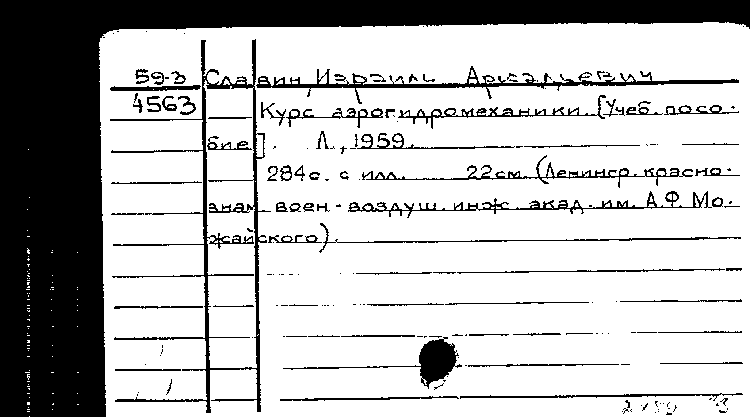 59-3 Славин, Израиль Аркадьевич
4563 Курс аэрогидромеханики. [Учеб. посо-
бие]. Л., 1959.
284 с. с илл. 22 см. (Ленингр. красно-
знам. воен-воздуш. инж. акад. им. А.Ф. Мо-
жайского).